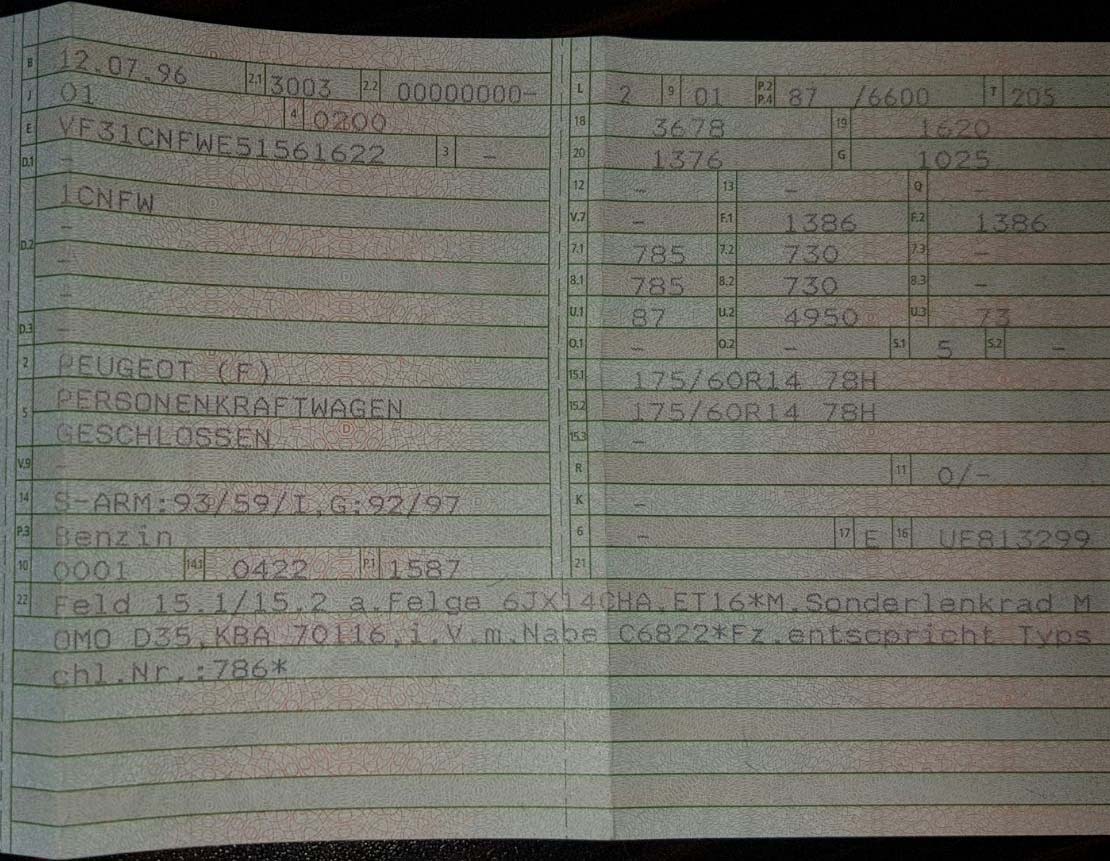 B 12.07.96 2.1 3003 2.2 00000000-
J 01 4 0200
E VF31CNFWE51561622 3 -
D.1 -
1CNFW
D.2 -
-
-
D.3 -
2 PEUGEOT (F)
5 PERSONENKRAFTWAGEN
GESCHLOSSEN
V.9 -
14 S-ARM:93/59/I,G:92/97
P.3 Benzin
10 0001 14.1 0422 P.1 1587
L 2 9 01 P.2 P.4 87 /6600 T 205
18 3678 19 1620
20 1376 G 1025
12 - 13 - Q -
V.7 - F.1 1386 F.2 1386
7.1 785 7.2 730 7.3 -
8.1 785 8.2 730 8.3 -
U.1 87 U.2 4950 U.3 73
O.1 - O.2 - S.1 5 S.2 -
15.1 175/60R14 78H
15.2 175/60R14 78H
15.3 -
R 11 0/-
K -
6 - 17 E 16 UE813299
21
22 Feld 15.1/15.2 a.Felge 6JX14CHA.ET16*M.Sonderlenkrad M
OMO D35,KBA 70116,i.V.m.Nabe C6822*Fz.entscpricht Typs
chl.Nr.:786*